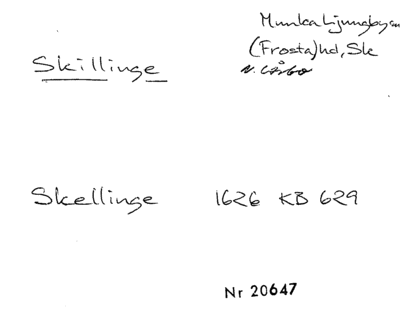 Skillinge
Munka Ljungby sn
(Frosta) hd, Sk
N. Åsbo
Skellinge 1626 KB 629
Nr 20647